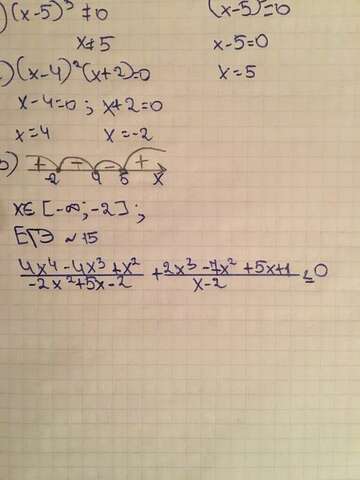 ) (x-5)³ ≠ 0 (x-5)⁵=0
x≠5 x-5=0
) (x-4)²(x+2)=0 x=5
x-4=0; x+2=0
x=4 x=-2
) + - - +
-2 4 5 x
x∈[-∞;-2];
ЕГЭ ~15
(4x⁴-4x³+x²)/(-2x²+5x-2) + (2x³-7x²+5x+1)/(x-2) ≤ 0